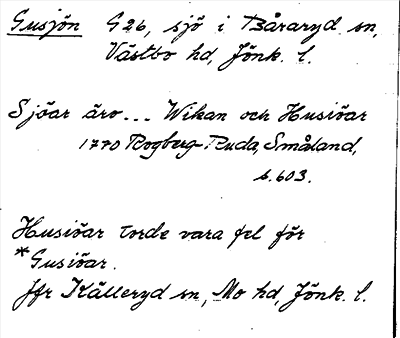 Gusjön G26, sjö i Båraryd sn,
Västbo hd, Jönk. l.
Sjöar äro... Wikan och Husiöar
1770 Rogberg-Ruda, Småland,
s. 603.
Husiöar torde vara fel för
*Gusiöar.
Jfr Källeryd sn, Mo hd, Jönk. l.